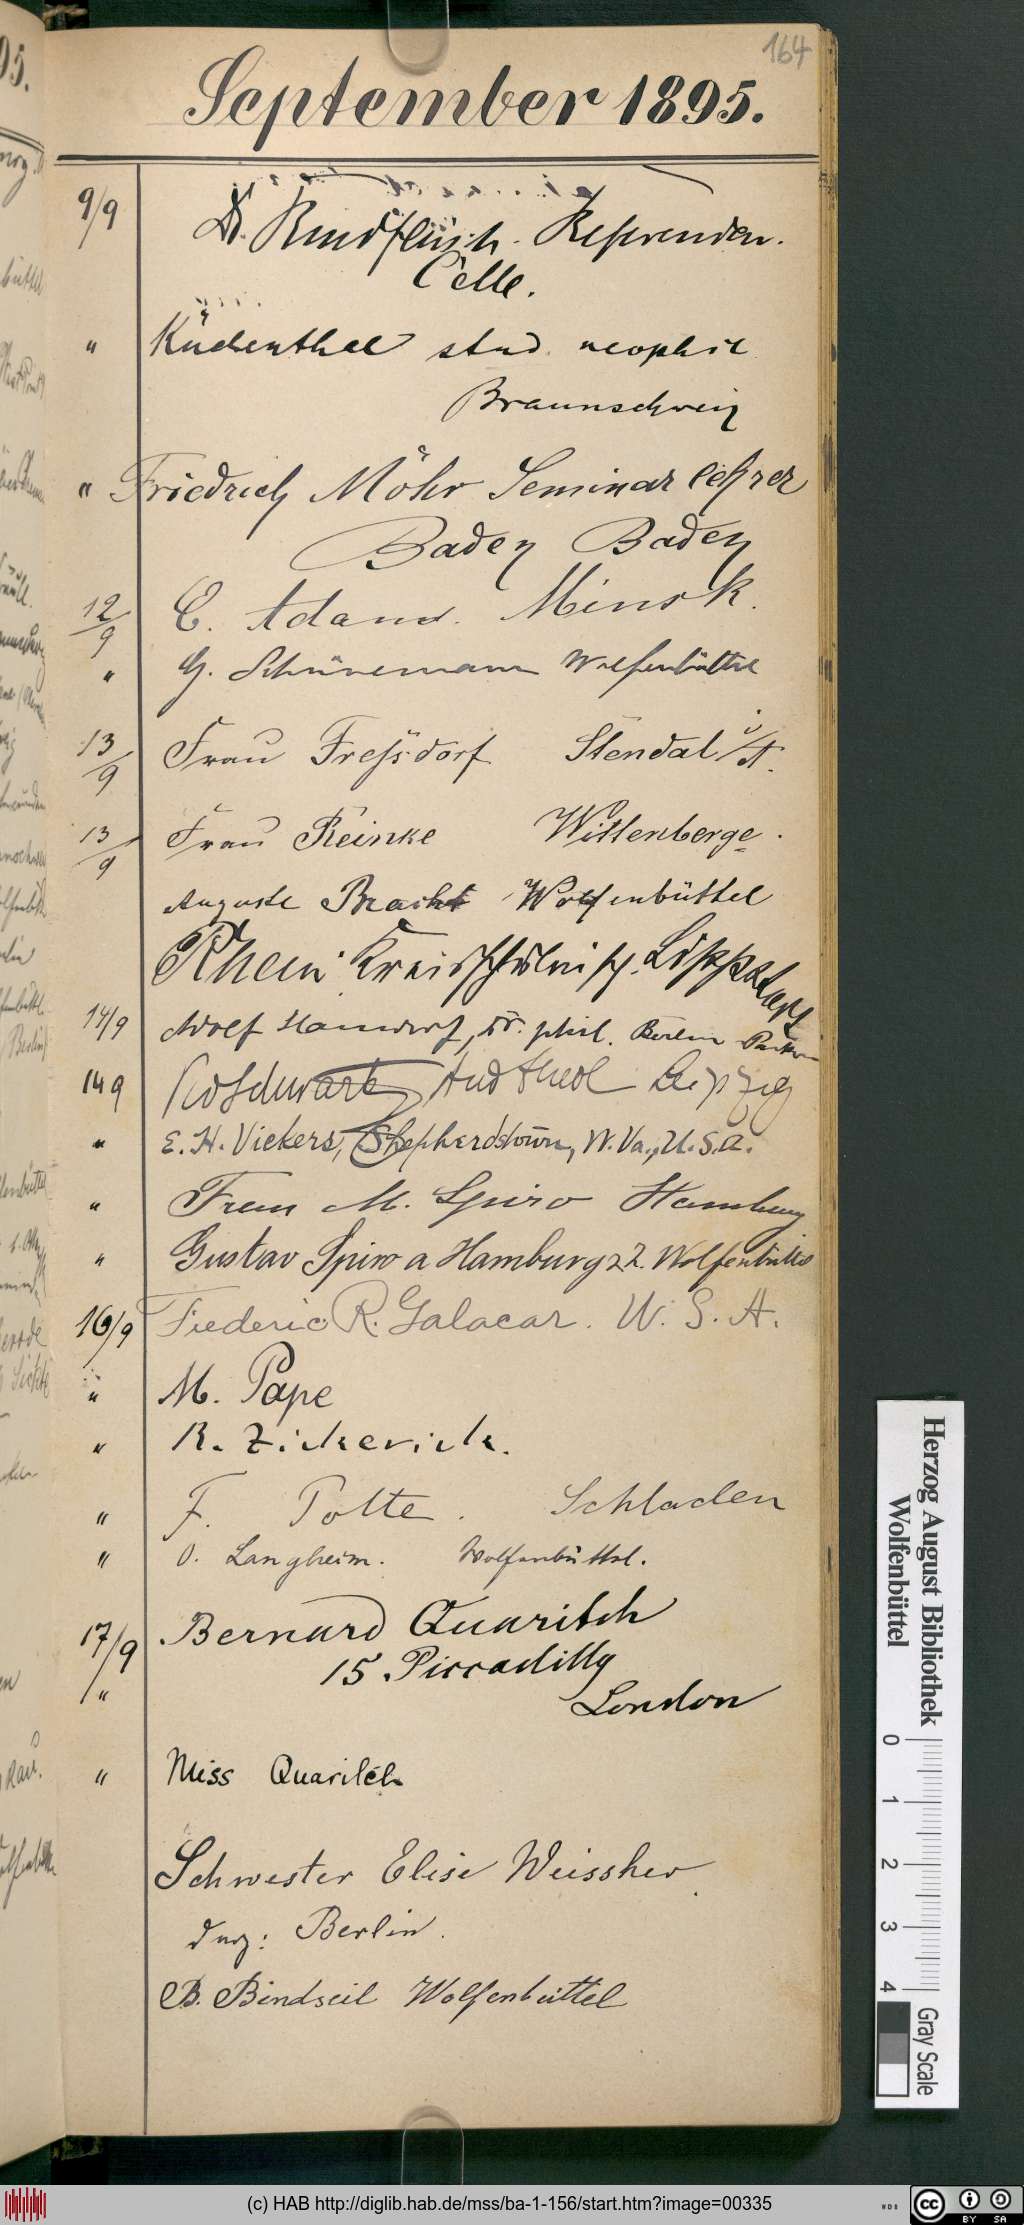 164
September 1895.
9/9 Dr. Rindfleisch. Referendar.
Celle.
" Kückenthal stud. neophil
Braunschweig
" Friedrich Möhr Seminarlehrer
Baden Baden
12/9 C. Adam. Minsk.
" G. Schünemann Wolfenbüttel
13/9 Frau Freßdorf Stendal i/A.
13/9 Frau Reinke Wittenberge.
Auguste Bracht Wolfenbüttel
Rhein Kreisschulinsp. Lippstadt
14/9 Adolf , Dr. phil. Berlin
149 Schwartz stud theol Leipzig
" E. H. Vickers, Shepherdstown, W. Va., U.S.A.
" Frau M. Spiro Hamburg
" Gustav Spiro a Hamburg z Z. Wolfenbüttel
16/9 Frederic R. Galacar. U. S. A.
" M. Pape
" R. Zickerick.
" F. Polte. Schladen
" O. Langheim. Wolfenbüttel.
17/9 Bernard Quaritch
15 Piccadilly
" London
" Miss Quaritch
Schwester Elise
Berlin.
B. Bindseil Wolfenbüttel
Herzog August Bibliothek
Wolfenbüttel
0 1 2 3 4
Gray Scale
(c) HAB http://diglib.hab.de/mss/ba-1-156/start.htm?image=00335
cc BY SA